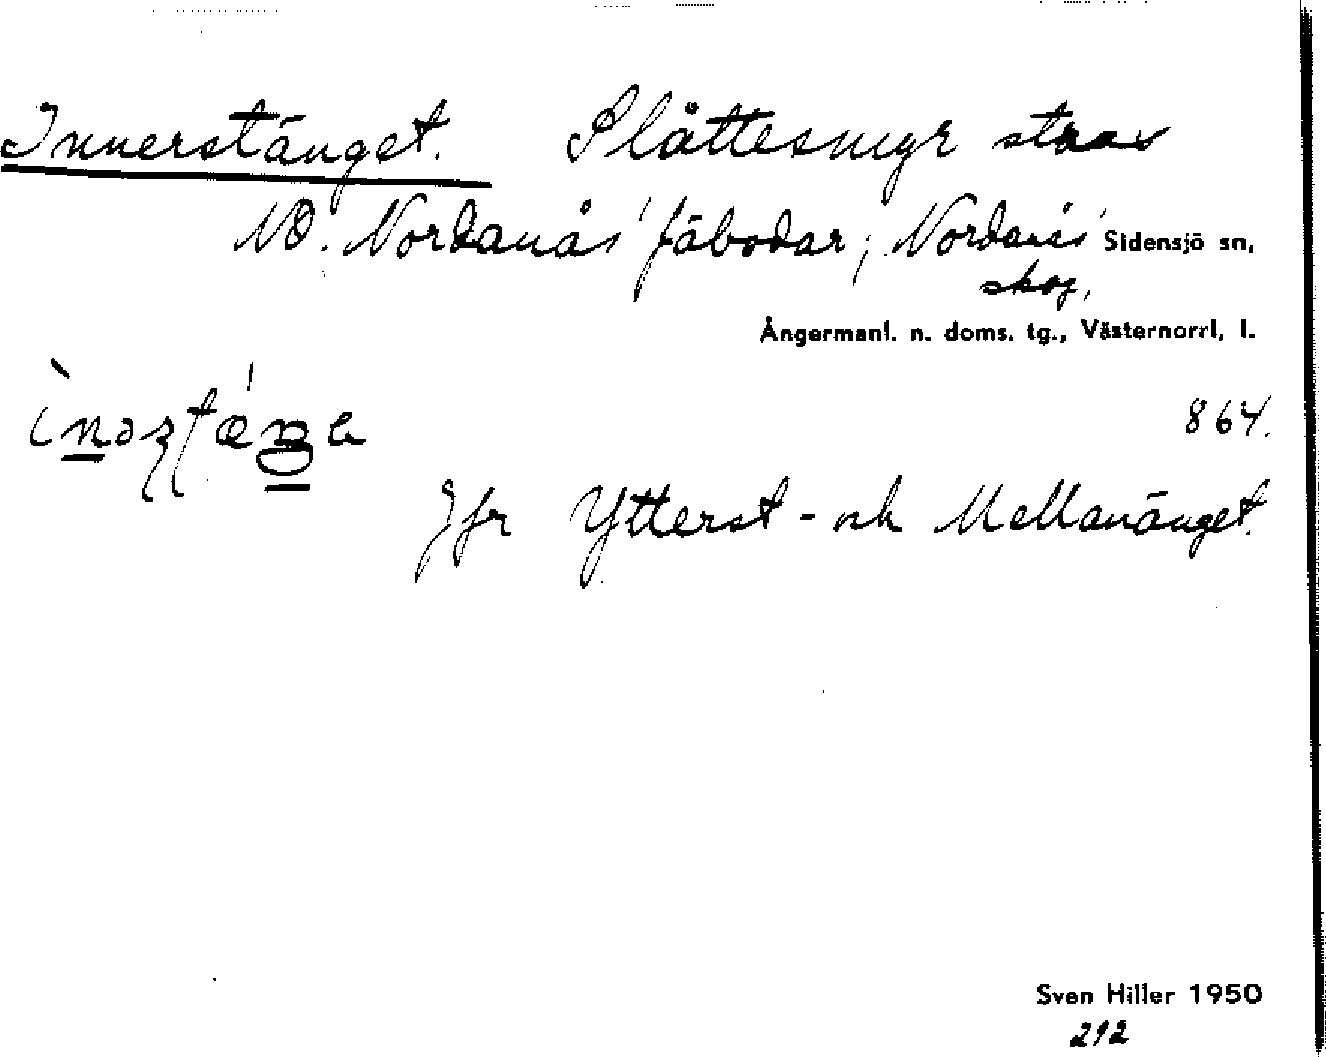 Innerstänget. Slåttesmyr strax
NO. Nordanås' fäbodar; Nordanås' Sidensjö sn,
skog,
Ångermanl. n. doms. tg., Västernorrl. l.
864.
Jfr Ytterst- och Mellanänget.
Sven Hiller 1950
212